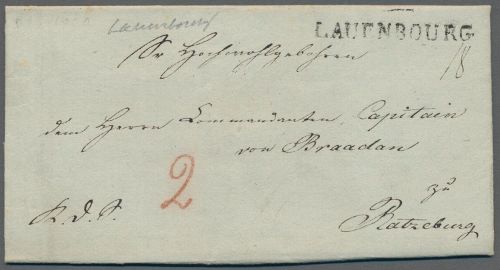 Lauenbourg
LAUENBOURG
Sr Hochwohlgebohren
18
dem Herrn Commandanten, Capitain
von Braadan
2
zu
K. d. S.
Ratzeburg